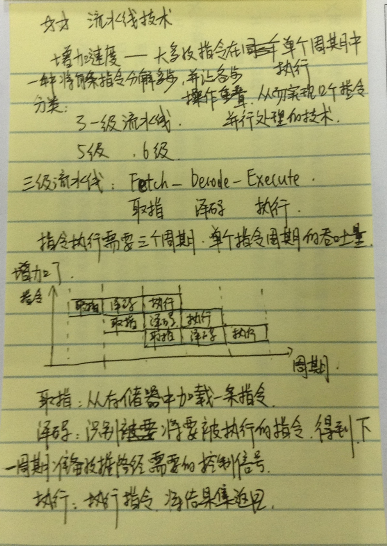 流水线技术
增加速度 — 大多数指令在单个周期中
执行
一种将每条指令分解多步,并让各步
操作重叠,从而实现几个指令
分类: 并行处理的技术.
3-级流水线.
5级 .6级
三级流水线: Fetch - Decode - Execute.
取指 译码 执行.
指令执行需要三个周期.单个指令周期的吞吐量
增加了.
指令
取指 译码 执行
取指 译码 执行
取指 译码 执行
周期.
取指:从存储器中加载一条指令.
译码:识别将要被执行的指令.得到下
一周期准备数据路径需要的控制信号.
执行:执行指令 将结果集返回.